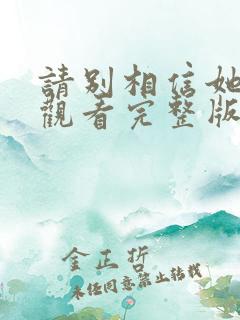 請別相信她
觀看完整版
金正哲
未任同意禁止转载